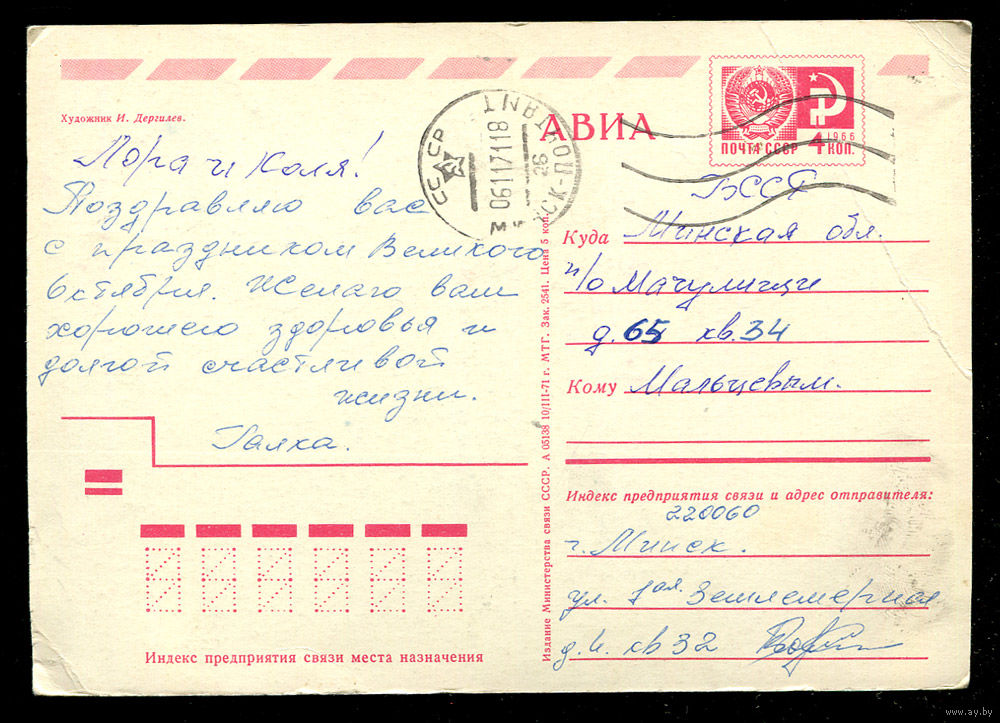 Художник И. Дергилев.
АВИА
1966
ПОЧТА СССР 4 КОП.
СССР
061171118
26
Лора и Коля!
Поздравляю вас
с праздником Великого
Октября. Желаю вам
хорошего здоровья и
долгой счастливой
жизни.
Галка.
БССР
Куда Минская обл.
п/о Мачулищи
д. 65 кв. 34
Кому Мальцевым.
Индекс предприятия связи и адрес отправителя:
220060
г. Минск.
ул. 1ая Землемерная
д. 4. кв 32
Индекс предприятия связи места назначения
Издание Министерства связи СССР. А 05138 10/III-71 г. МТГ. Зак. 2541. Цена 5 коп.
www.ay.by